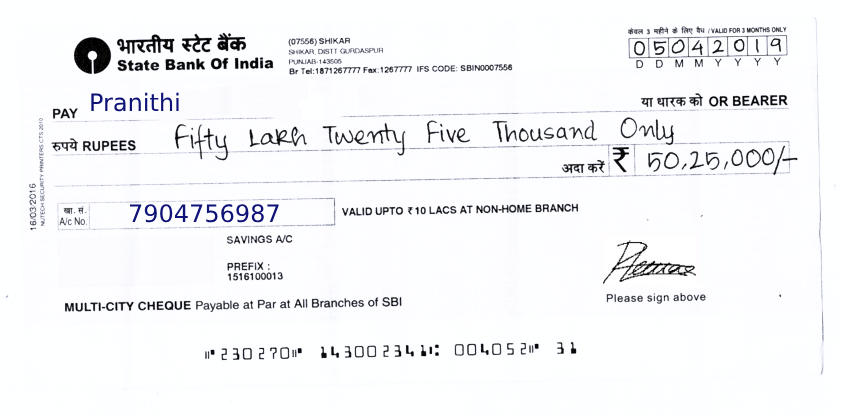 भारतीय स्टेट बैंक
State Bank Of India
(07556) SHIKAR
SHIKAR, DISTT GURDASPUR
PUNJAB-143505
Br Tel:1871267777 Fax:1267777 IFS CODE: SBIN0007556
केवल 3 महीने के लिए वैध / VALID FOR 3 MONTHS ONLY
05042019
D D M M Y Y Y Y
PAY Pranithi या धारक को OR BEARER
रुपये RUPEES Fifty Lakh Twenty Five Thousand Only
अदा करें ₹ 50,25,000/-
खा. सं. A/c No. 7904756987 VALID UPTO ₹ 10 LACS AT NON-HOME BRANCH
SAVINGS A/C
PREFIX :
1516100013
Please sign above
MULTI-CITY CHEQUE Payable at Par at All Branches of SBI
⑈230270⑈ 143002341⑆ 004052⑈ 31
16/03/2016
NUTECH SECURITY PRINTERS CTS 2010